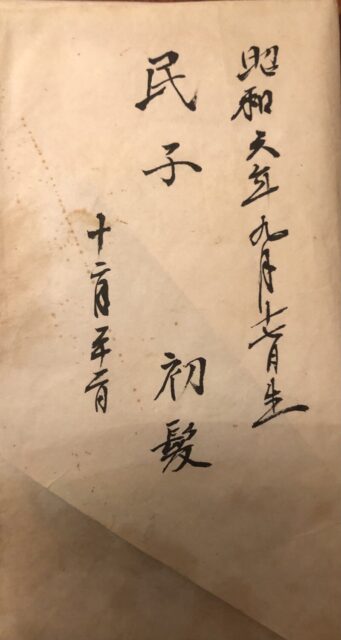 昭和六年九月十七日生
民子 初髪
十二月